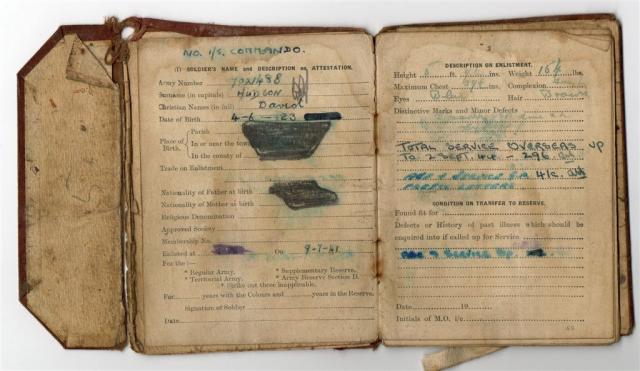 NO. 1/S. COMMANDO.
(I) SOLDIER'S NAME and DESCRIPTION on ATTESTATION.
Army Number
Surname (in capitals) HUDSON
Christian Names (in full) David
Date of Birth 4-6-23
Parish
Place of Birth. In or near the town
In the county of
Trade on Enlistment
Nationality of Father at birth
Nationality of Mother at birth
Religious Denomination
Approved Society
Membership No.
Enlisted at On 9-7-41
For the :—
* Regular Army. * Supplementary Reserve.
* Territorial Army. * Army Reserve Section D.
* Strike out those inapplicable.
For years with the Colours and years in the Reserve.
Signature of Soldier
Date
DESCRIPTION ON ENLISTMENT.
Height ft. ins. Weight lbs.
Maximum Chest ins. Complexion
Eyes Hair Brown
Distinctive Marks and Minor Defects
TOTAL SERVICE OVERSEAS UP
TO 2 SEPT. 44 - 296
CONDITION ON TRANSFER TO RESERVE.
Found fit for
Defects or History of past illness which should be
enquired into if called up for Service
Date 19
Initials of M.O. i/c